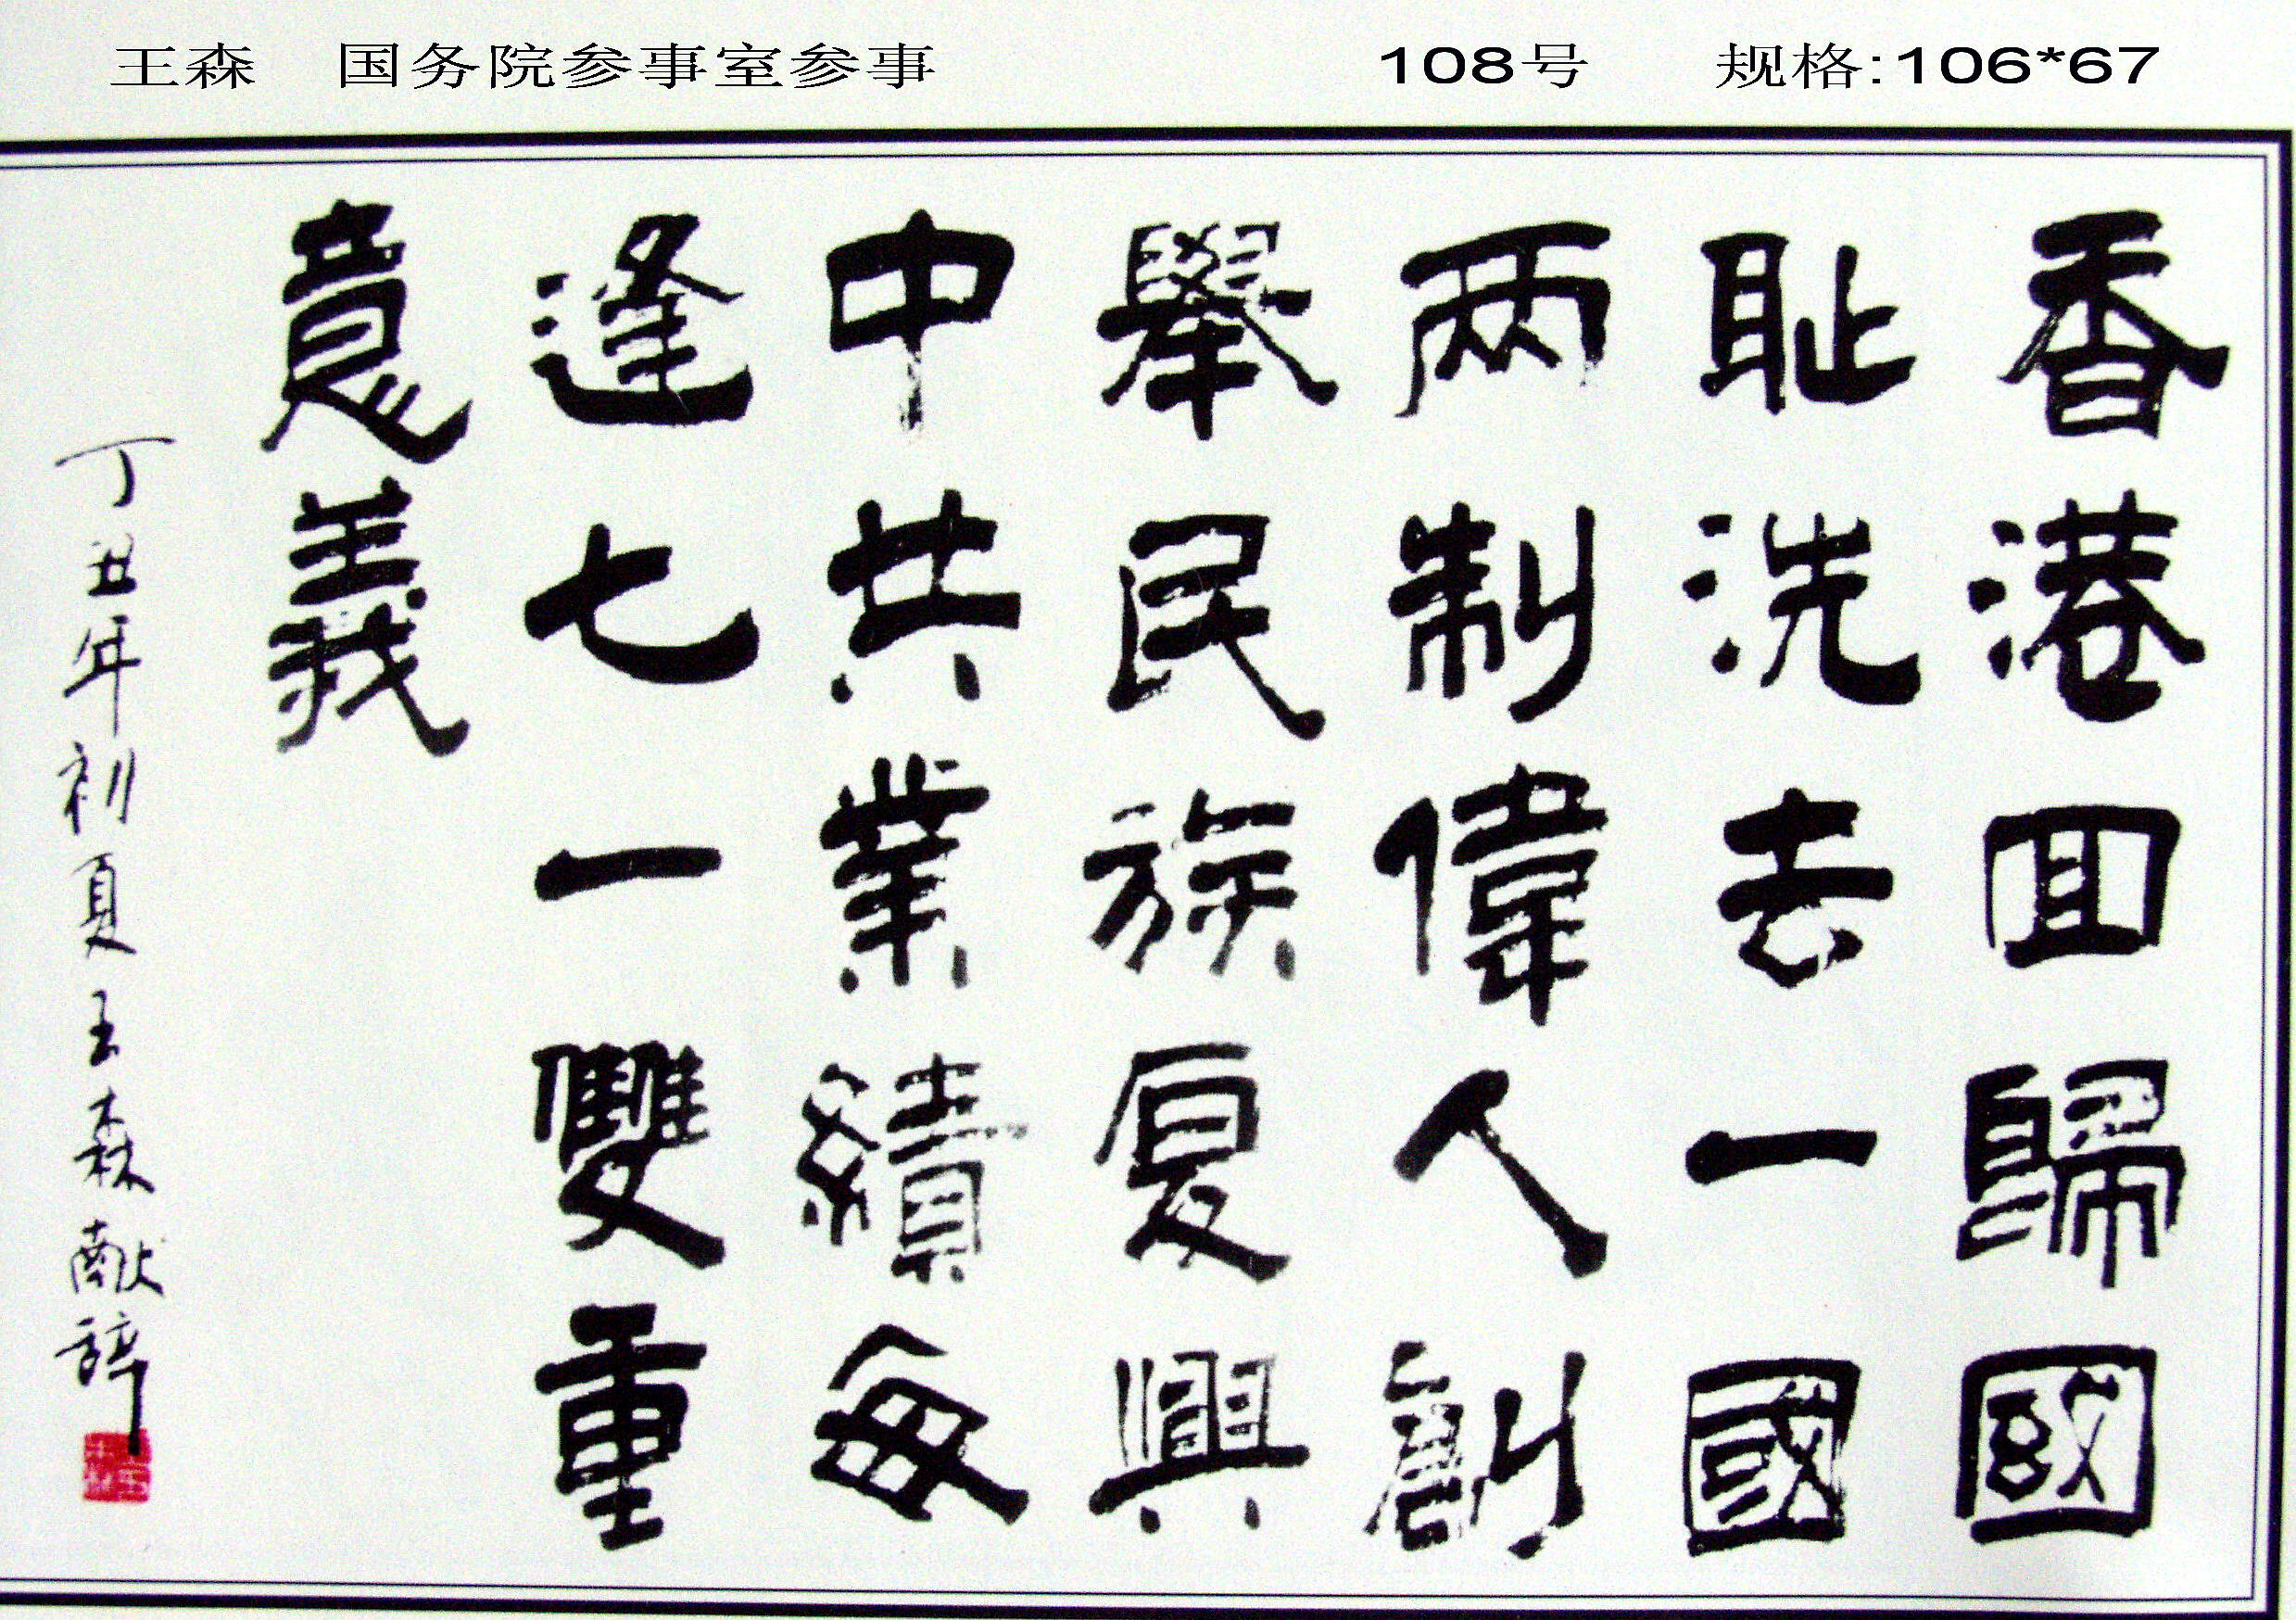 王森 国务院参事室参事 108号 规格:106*67
香港回歸國
耻洗去一國
兩制偉人創
舉民族复興
中共業績每
逢七一雙重
意義
丁丑年初夏王森献辞